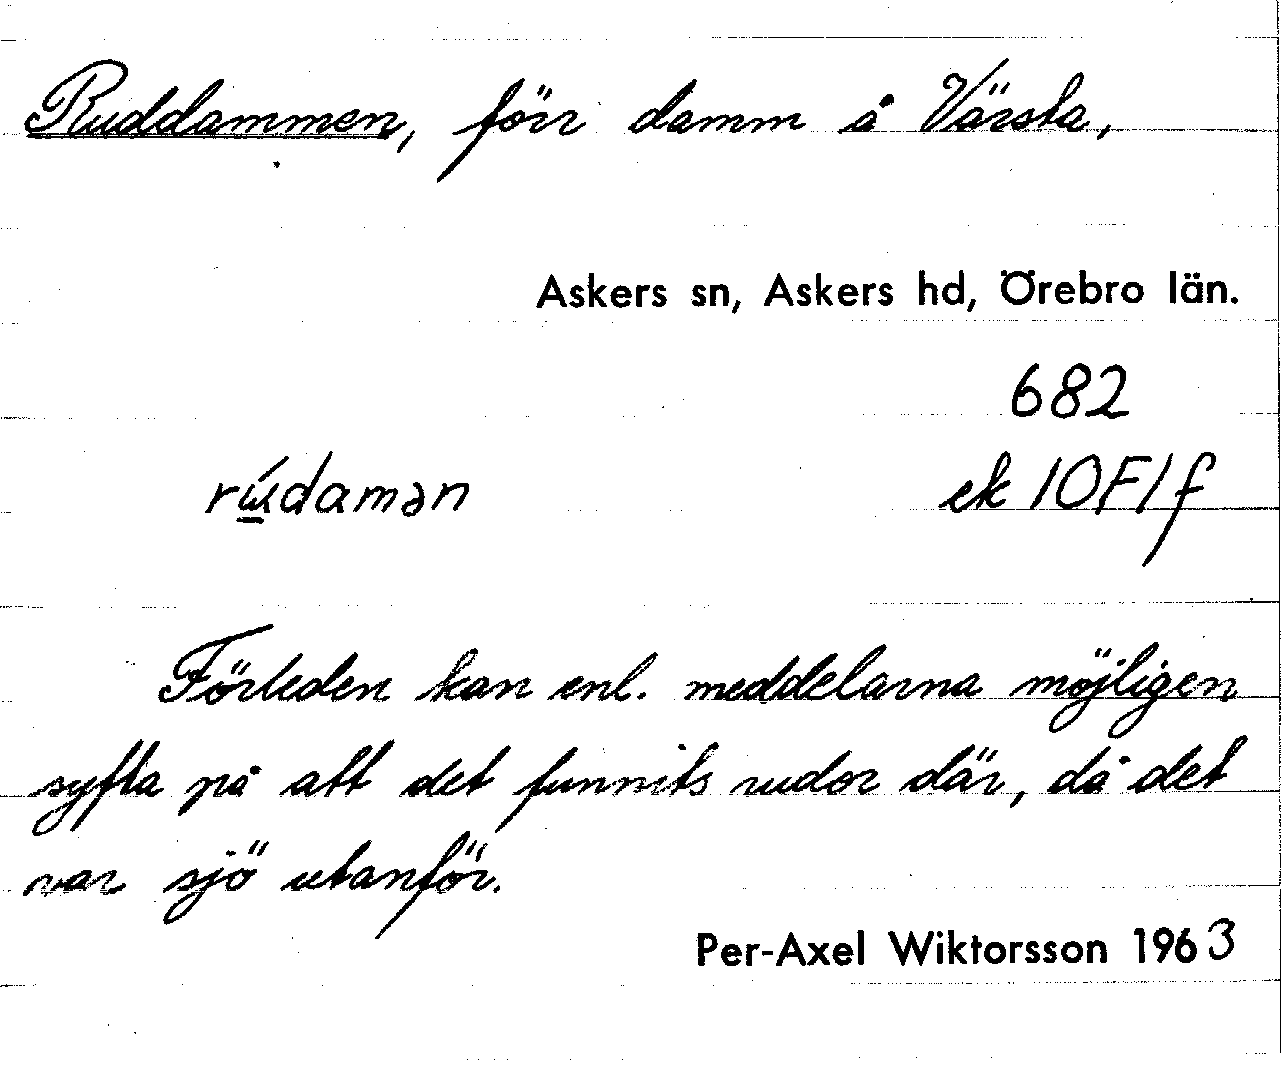 Ruddammen, förr damm å Värsta,
Askers sn, Askers hd, Örebro län.
682
rúdamən
ek 10F1f
Förleden kan enl. meddelarna möjligen
syfta på att det funnits rudor där, då det
var sjö utanför.
Per-Axel Wiktorsson 1963